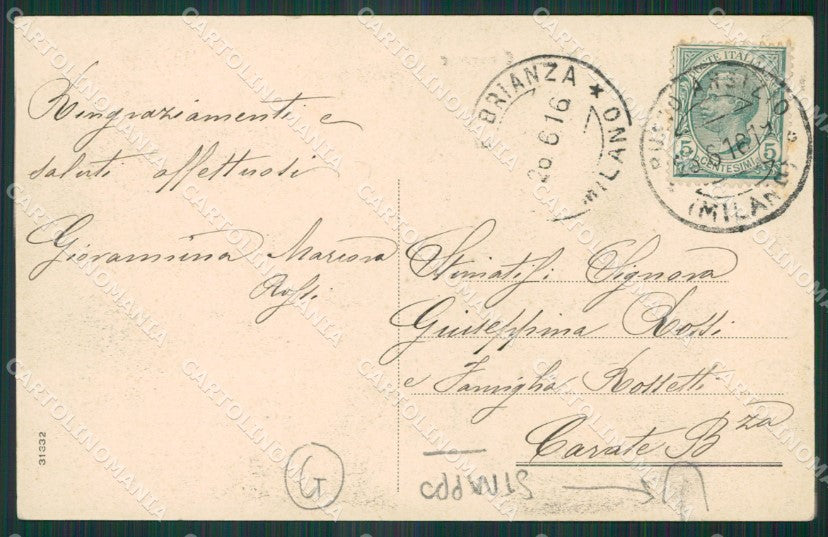 Ringraziamenti e
saluti affettuosi
Giovannina Rossi
BRIANZA ★ (MILANO)
26.6.16
POSTE ITALIANE
5 CENTESIMI 5
BUSTO ARSIZIO
(MILANO)
Signora
Giuseppina Rossi
e Famiglia Rossetti
Carate Bza
31332
G
STRAPPO
CARTOLINOMANIA